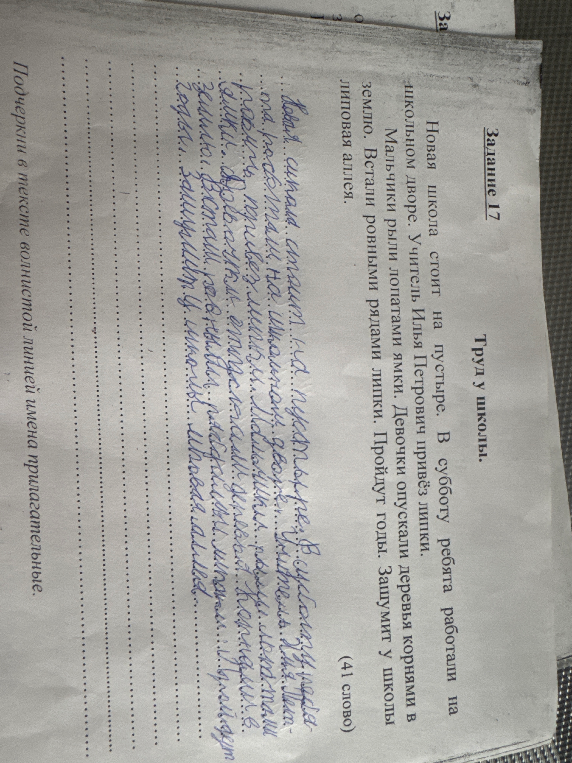 За
Задание 17
Труд у школы.
Новая школа стоит на пустыре. В субботу ребята работали на
школьном дворе. Учитель Илья Петрович привёз липки.
Мальчики рыли лопатами ямки. Девочки опускали деревья корнями в
землю. Встали ровными рядами липки. Пройдут годы. Зашумит у школы
липовая аллея.
(41 слово)
стоит на пустыре. В субботу ребя-
та работали на школьном дворе. Учитель Илья Пет-
рович привез липки. Мальчики рыли лопатами
ямки. Девочки опускали деревья корнями в
землю. Встали ровными рядами липки. Пройдут
годы. Зашумит у школы липовая аллея.
Подчеркни в тексте волнистой линией имена прилагательные.